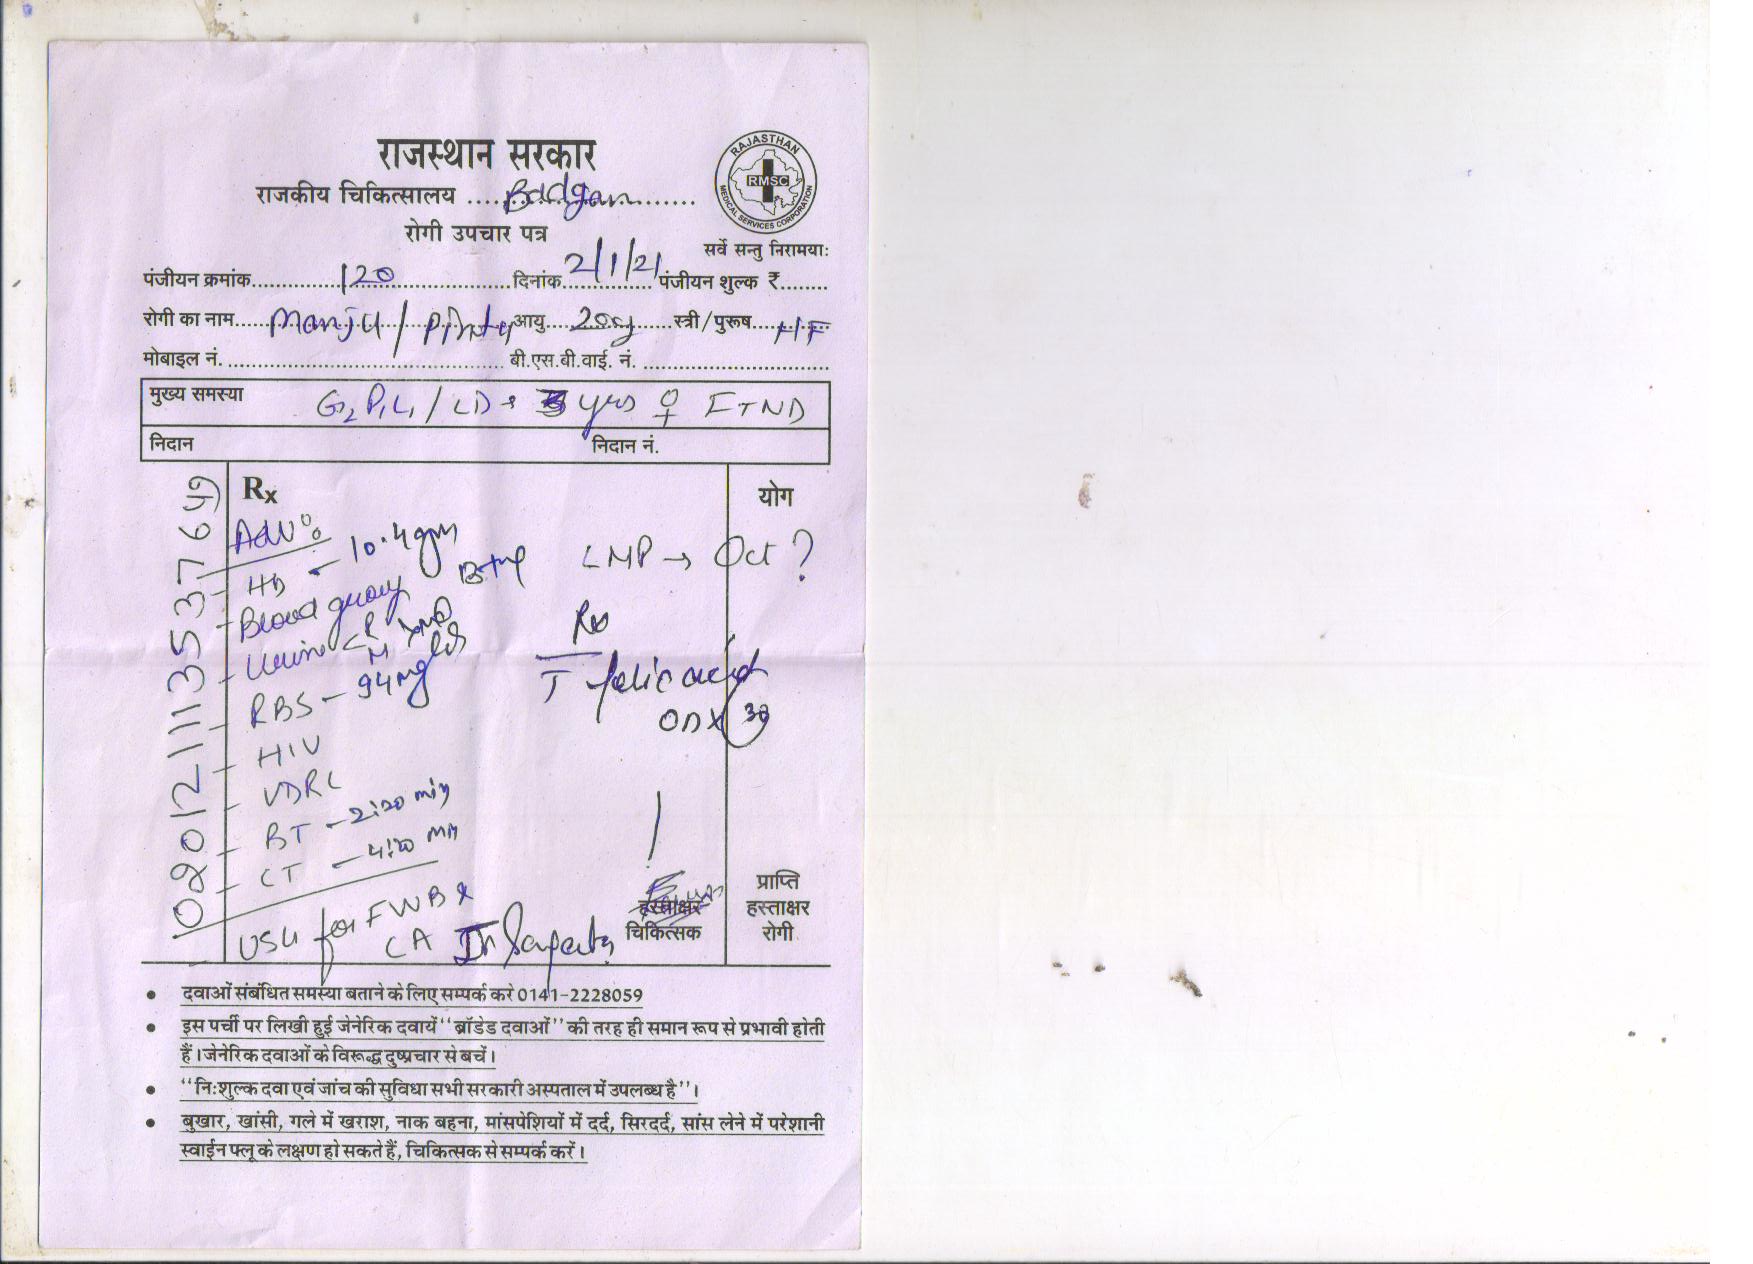 राजस्थान सरकार
राजकीय चिकित्सालय ..... Badgaon .....
रोगी उपचार पत्र
RAJASTHAN
RMSC
MEDICAL SERVICES CORPORATION
सर्वे सन्तु निरामयाः
पंजीयन क्रमांक..... 120 .....दिनांक..... 2/1/21 .....पंजीयन शुल्क ₹........
रोगी का नाम..... Manju / Pintu आयु..... 20y .....स्त्री/पुरूष..... HF
मोबाइल नं. ..... बी.एस.बी.वाई. नं. .....
मुख्य समस्या G2 P1 L1 / LD → yrs ♀ FTND
निदान निदान नं.
Rx योग
Adv:
- HB - 10.4 gm LMP → Oct ?
- Blood group B+ve
- Urine C R M Rx
- RBS - 94 mg T folic acid
- HIV OD X 30
- VDRL
- BT - 2:20 min
- CT - 4:20 min
- USG for FWB &
CA
हस्ताक्षर
चिकित्सक
प्राप्ति
हस्ताक्षर
रोगी
• दवाओं संबंधित समस्या बताने के लिए सम्पर्क करे 0141-2228059
• इस पर्ची पर लिखी हुई जेनेरिक दवायें ''ब्रॉडेड दवाओं'' की तरह ही समान रूप से प्रभावी होती
हैं। जेनेरिक दवाओं के विरूद्ध दुष्प्रचार से बचें।
• ''निःशुल्क दवा एवं जांच की सुविधा सभी सरकारी अस्पताल में उपलब्ध है''।
• बुखार, खांसी, गले में खराश, नाक बहना, मांसपेशियों में दर्द, सिरदर्द, सांस लेने में परेशानी
स्वाईन फ्लू के लक्षण हो सकते हैं, चिकित्सक से सम्पर्क करें।